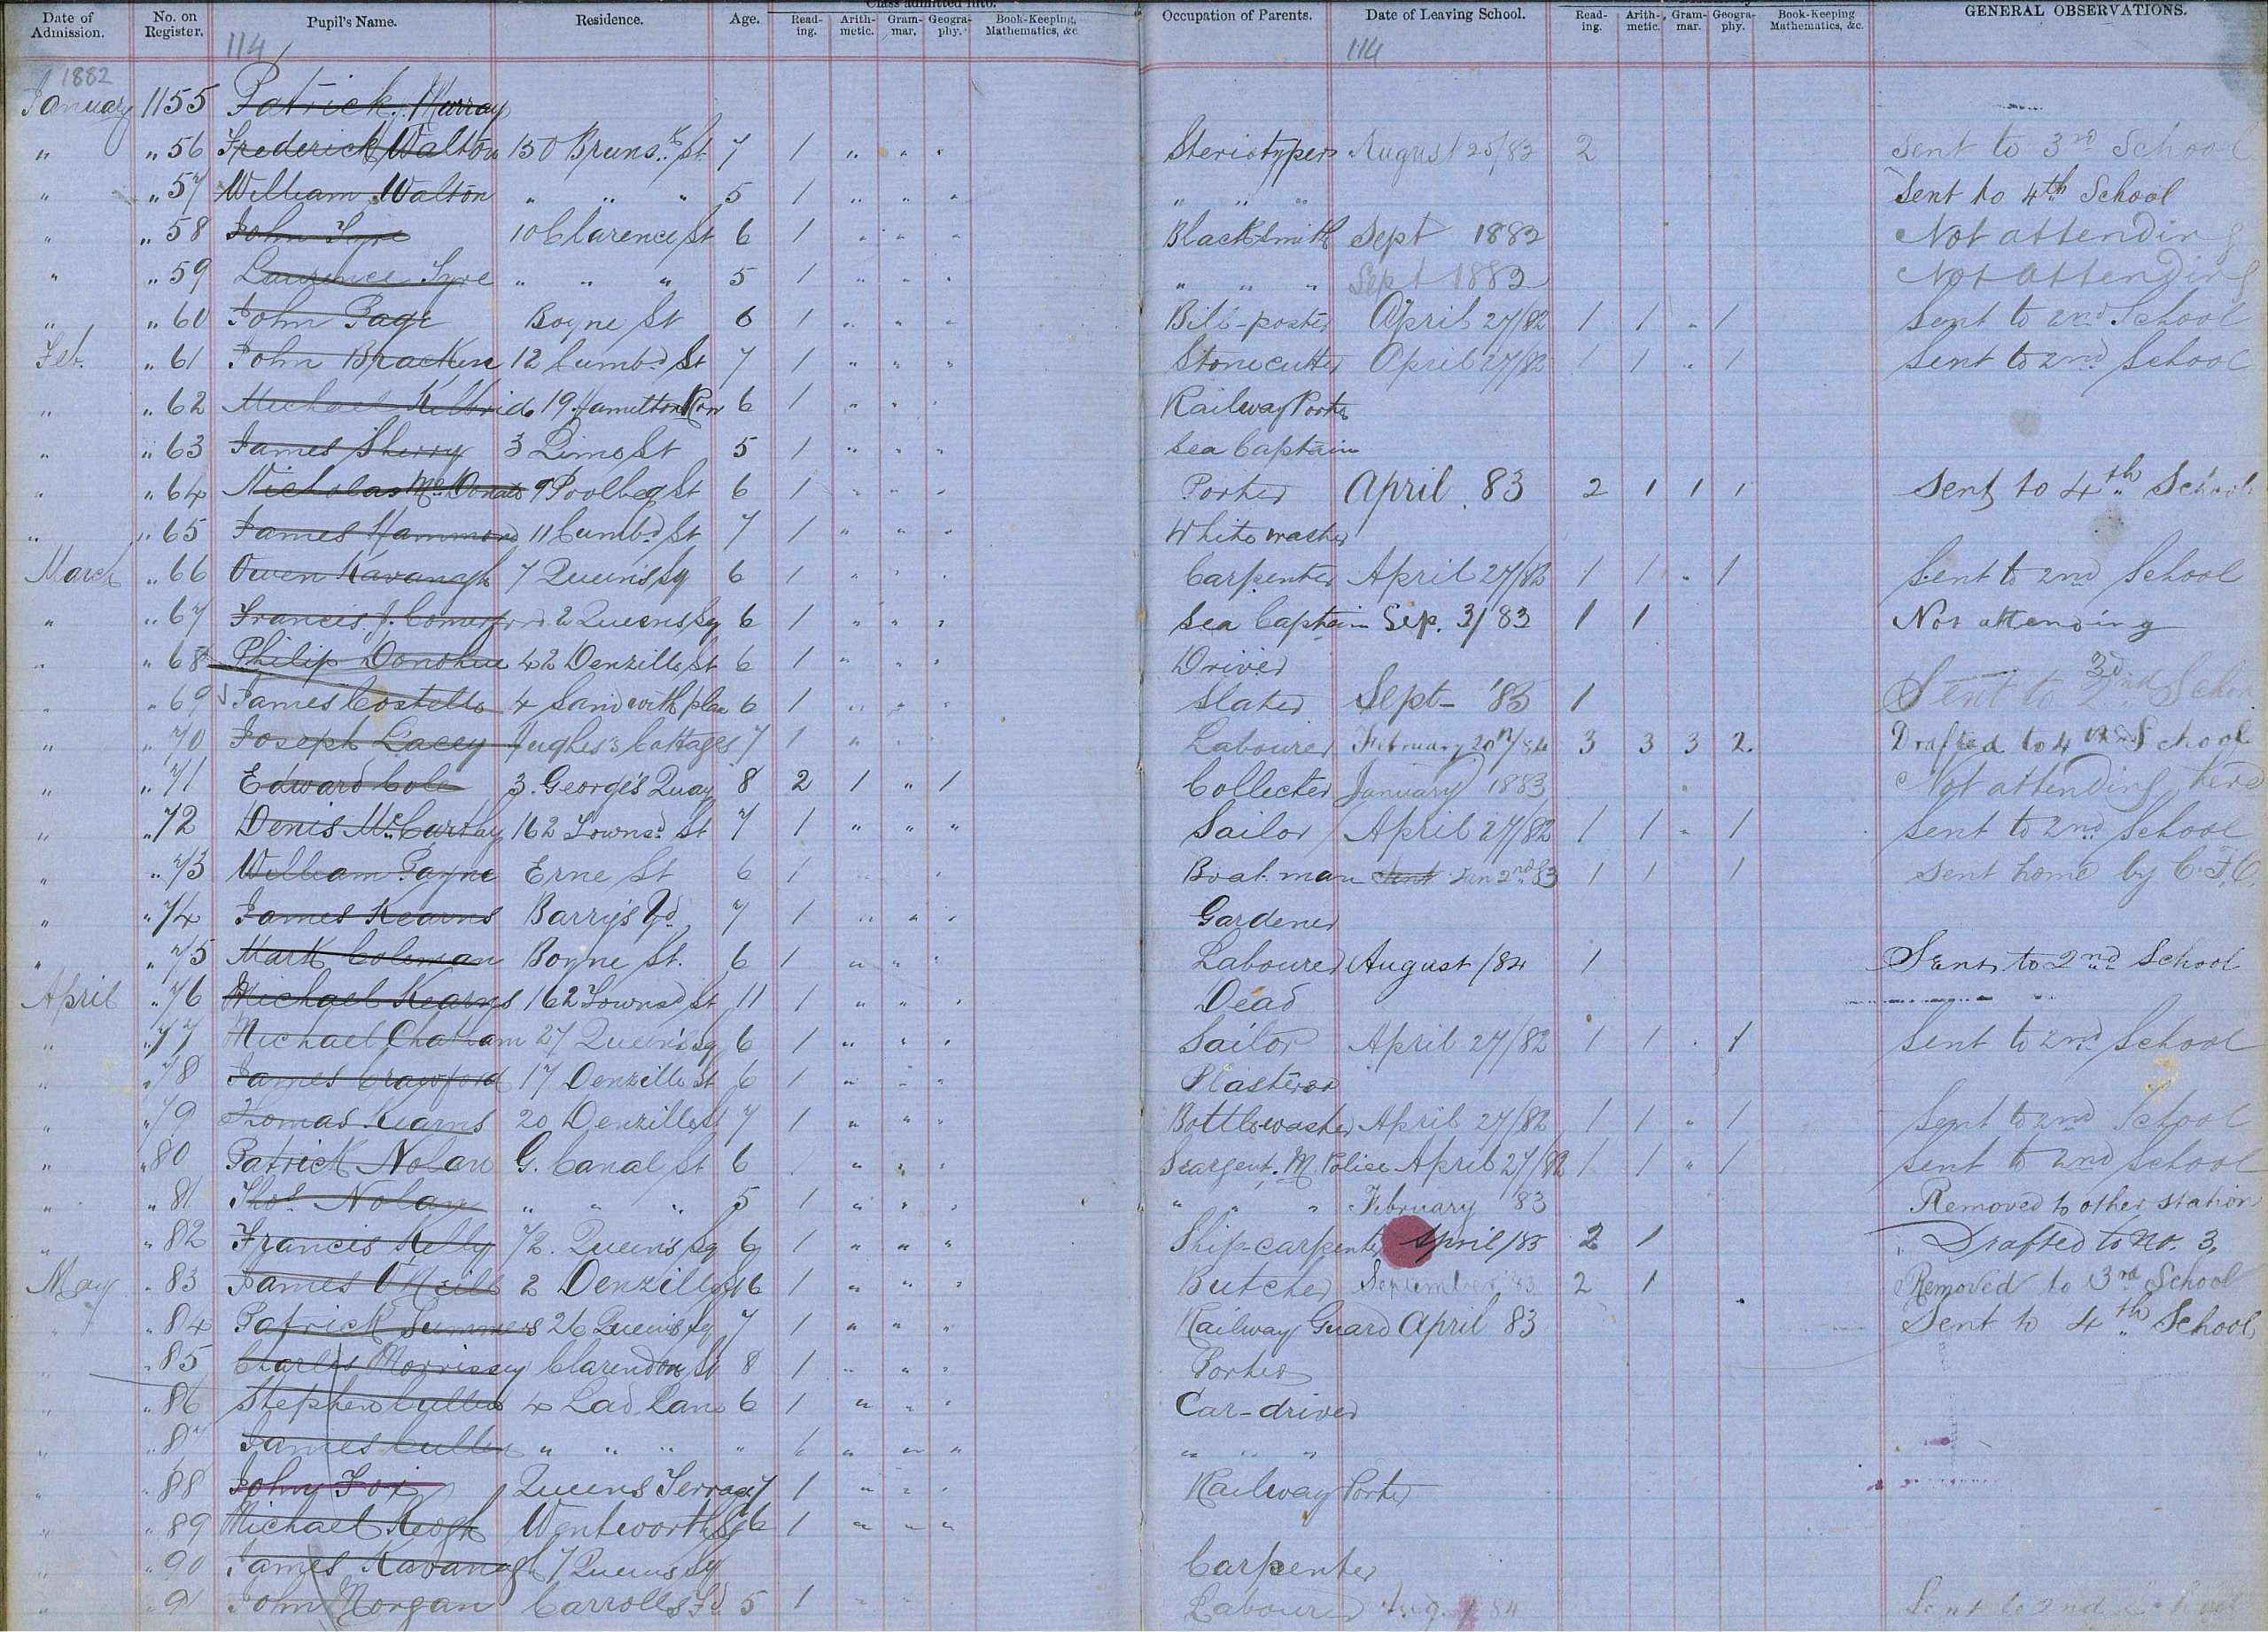 Date of Admission. No. on Register. Pupil's Name. Residence. Age. Class admitted into. Read-ing. Arith-metic. Gram-mar. Geogra-phy. Book-Keeping, Mathematics, &c. Occupation of Parents. Date of Leaving School. Read-ing. Arith-metic. Gram-mar. Geogra-phy. Book-Keeping Mathematics, &c. GENERAL OBSERVATIONS.
114 114
1882
January 1155 Patrick Murray
" " 56 Frederick Walton 150 Bruns.k St 7 1 " " " Steriotyper August 25/82 2 Sent to 3rd School
" " 57 William Walton " " " 5 1 " " " " " " Sent to 4th School
" " 58 John Tyre 10 Clarence St 6 1 " " " Blacksmith Sept 1882 Not attending
" " 59 Laurence Tyre " " " 5 1 " " " " " " Sept 1882 Not attending
" " 60 John Page Boyne St 6 1 " " " Bill-poster April 27/82 1 1 " 1 Sent to 2nd School
Feb. " 61 John Bracken 12 Cumb.d St 7 1 " " " Stonecutter April 27/82 1 1 " 1 Sent to 2nd School
" " 62 Michael Kilbride 19 Hamilton Row 6 1 " " " Railway Porter
" " 63 James Sherry 3 Lime St 5 1 " " " Sea Captain
" " 64 Nicholas McDonald 9 Poolbeg St 6 1 " " " Porter April 83 2 1 1 1 Sent to 4th School
" " 65 James Hammond 11 Cumb.d St 7 1 " " " White washer
March " 66 Owen Kavanagh 7 Queen's Sq 6 1 " " " Carpenter April 27/82 1 1 " 1 Sent to 2nd School
" " 67 Francis J. Comerford 2 Queens Sq 6 1 " " " Sea Captain Sep. 3/83 1 1 Not attending
" " 68 Philip Donohue 42 Denzille St 6 1 " " " Driver
" " 69 James Costello 4 Sandwith place 6 1 " " " Slater Sept- '83 1 Sent to 3rd School
" " 70 Joseph Lacey Hughes's Cottages 7 1 " " " Labourer February 20th/84 3 3 3 2. Drafted to 4 School
" " 71 Edward Cole 3. George's Quay 8 2 1 " 1 Collecter January 1883 Not attending here
" " 72 Denis McCarthy 162 Towns.d St 7 1 " " " Sailor April 27/82 1 1 " 1 Sent to 2nd School
" " 73 William Payne Erne St 6 1 " " " Boat-man Jan 2nd 83 1 1 1 Sent home by C.F.C.
" " 74 James Kearns Barry's Yd. 7 1 " " " Gardener
" " 75 Mark Coleman Boyne St. 6 1 " " " Labourer August /84 1 Sent to 2nd School
April " 76 Michael Kearns 162 Townsd St 11 1 " " " Dead
" " 77 Michael Chatham 27 Queen's Sq 6 1 " " " Sailor April 27/82 1 1 " 1 Sent to 2nd School
" " 78 James Crawford 17 Denzille St 6 1 " " " Plasterer
" " 79 Thomas Kearns 20 Denzille St 7 1 " " " Bottlewasher April 27/82 1 1 " 1 Sent to 2nd School
" " 80 Patrick Nolan G. Canal St 6 " " " Seargent. M. Police April 27/82 1 1 " 1 Sent to 2nd School
" " 81 Thos. Nolan " " " 5 1 " " " " " " February 83 Removed to other station
" " 82 Francis Kelly 72. Queen's Sq 6 1 " " " Ship-carpenter April/83 2 1 Drafted to No. 3.
May " 83 James O'Neill 2 Denzille St 6 1 " " " Butcher September 83 2 1 Removed to 3rd School
" " 84 Patrick Summers 26 Queen's Sq 7 1 " " " Railway Guard April 83 Sent to 4th School
" " 85 Charles Morrissey Clarendon St 8 1 " " " Porter
" " 86 Stephen Cullen 4 Lad Lane 6 1 " " " Car-driver
" " 87 James Cullen " " " " " " " " " "
" " 88 John Fox Queens Terrace 7 1 " " " Railway Porter
" " 89 Michael Keogh Wentworth 6 1 " " "
" " 90 James Kavanagh 7 Queens Sq Carpenter
" " 91 John Morgan Carrolls Yd. 5 1 " " " Labourer Aug. 84 Sent to 2nd School